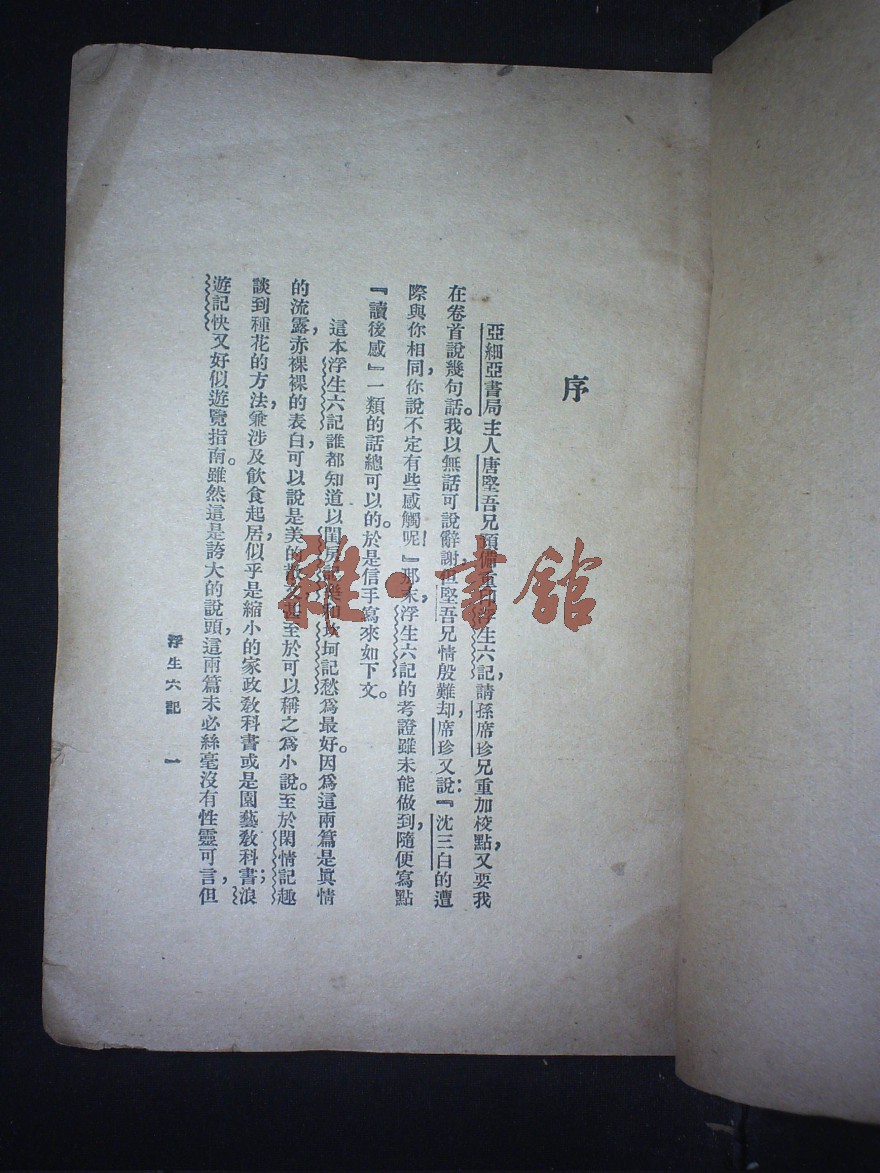 序
亞細亞書局主人唐堅吾兄預備重印浮生六記，請孫席珍兄重加校點，又要我
在卷首說幾句話。我以無話可說辭謝但堅吾兄情殷難却，席珍又說：『沈三白的遭
際與你相同，你說不定有些感觸呢！』那末，浮生六記的考證雖未能做到，隨便寫點
『讀後感』一類的話總可以的。於是信手寫來如下文。
這本浮生六記誰都知道以閨房記樂和坎坷記愁爲最好。因爲這兩篇是眞情
的流露，赤裸裸的表白，可以說是美的散文，甚至於可以稱之爲小說。至於閑情記趣
談到種花的方法，兼涉及飲食起居，似乎是縮小的家政敎科書或是園藝敎科書；浪
遊記快又好似遊覽指南。雖然這是誇大的說頭，這兩篇未必絲毫沒有性靈可言，但
浮生六記 一
雜·書館